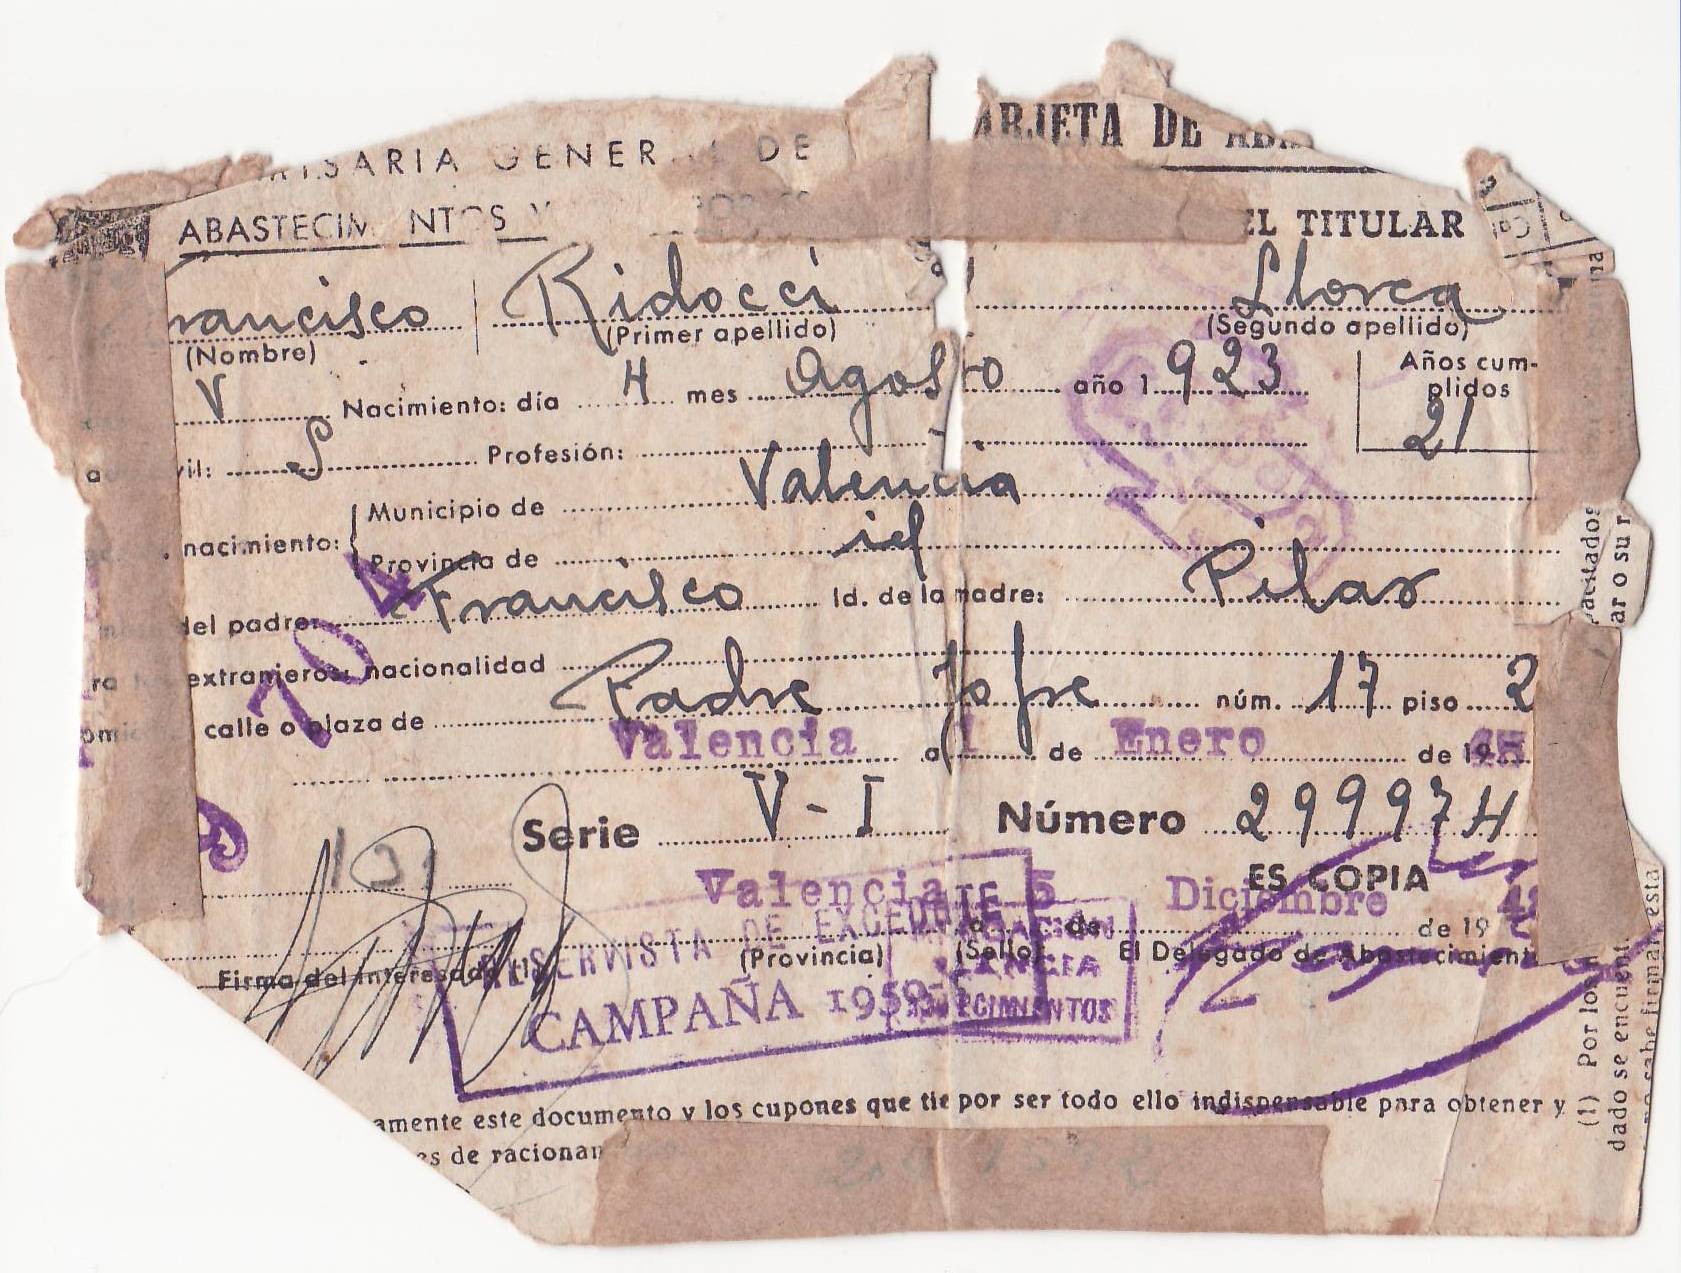 GENER DE
ARJETA DE
ABASTECIM NTOS Y
EL TITULAR
rancisco Ridocci Llorca
(Nombre) (Primer apellido) (Segundo apellido)
V Nacimiento: día 4 mes Agosto año 1 923 Años cum-
plidos
21
vil: S Profesión: -
nacimiento: Municipio de Valencia
Provincia de id
del padre: Francisco Id. de la madre: Pilar
extranjeros: nacionalidad
calle o plaza de Padre Jofre núm. 17 piso 2
Valencia a 1 de Enero de 19 45
704
Serie V-I Número 299974
ES COPIA
Valencia 5 de Diciembre de 19
(Provincia) (Sello) El Delegado de Abastecimient
Firma del interesado
SERVISTA DE EXCEDENTE
CAMPAÑA
amente este documento y los cupones que tie por ser todo ello indispensable para obtener y
es de racionan
(1) Por los
dado se encuent
no sabe firmar esta
pacitados
ar o su r